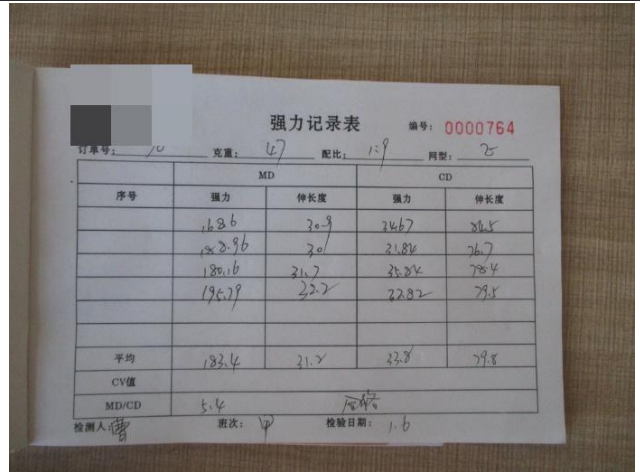 强力记录表 编号: 0000764
订单号: 克重: 47 配比: 1:9 网型:
MD CD
序号 强力 伸长度 强力 伸长度
168.6 30.9 34.67 84.5
188.96 30 31.84 76.7
180.16 31.7 35.84 78.4
195.79 32.2 32.82 79.5
平均 183.4 31.2 33.8 79.8
CV值
MD/CD 5.4 合格
检测人: 曹 班次: 甲 检验日期: 1.6